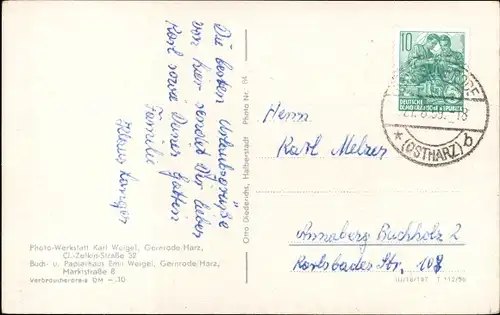 Die besten Urlaubsgrüße
von hier sendet Dir lieber
Karl sowie Deiner Gattin
Familie
Klaus
Photo-Werkstatt Karl Weigel, Gernrode/Harz,
Cl.-Zetkin-Straße 32
Buch- u. Papierhaus Emil Weigel, Gernrode/Harz,
Marktstraße 8
Verbraucherpreis DM -.10
Otto Diederichs, Halberstadt Photo Nr. 84
10
DEUTSCHE
DEMOKRATISCHE REPUBLIK
(OSTHARZ) b
Herrn
Karl Melzer
Annaberg Buchholz 2
Karlsbader Str. 107
III/18/197 T 112/56